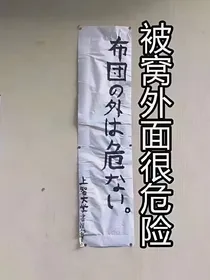 布団の外は危ない。
上智大学
被窝外面很危险